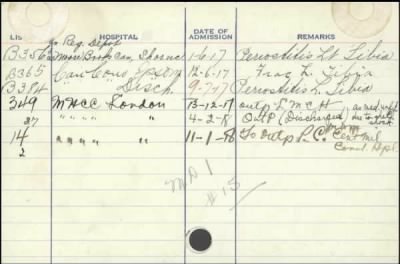 LIST HOSPITAL DATE OF ADMISSION REMARKS
to Reg. Depot
B356 Moore Brks Can, Shorncl 1-6-17 Periostitis Lt Tibia
B365 Can Conv Epsom 12-6-17 Frac L. Tibia
B384 " " Disch. 9-7-17 Periostitis L. Tibia
349 MHCC London 13-12-17 outp L M C H
27 " " " " " 4-2-18 OutP (Discharged as med. unfit
due to
shock
14 " " " " " 11-1-18 To Outp P.C.
2 Conv. Hpl.
M D 1
# 13